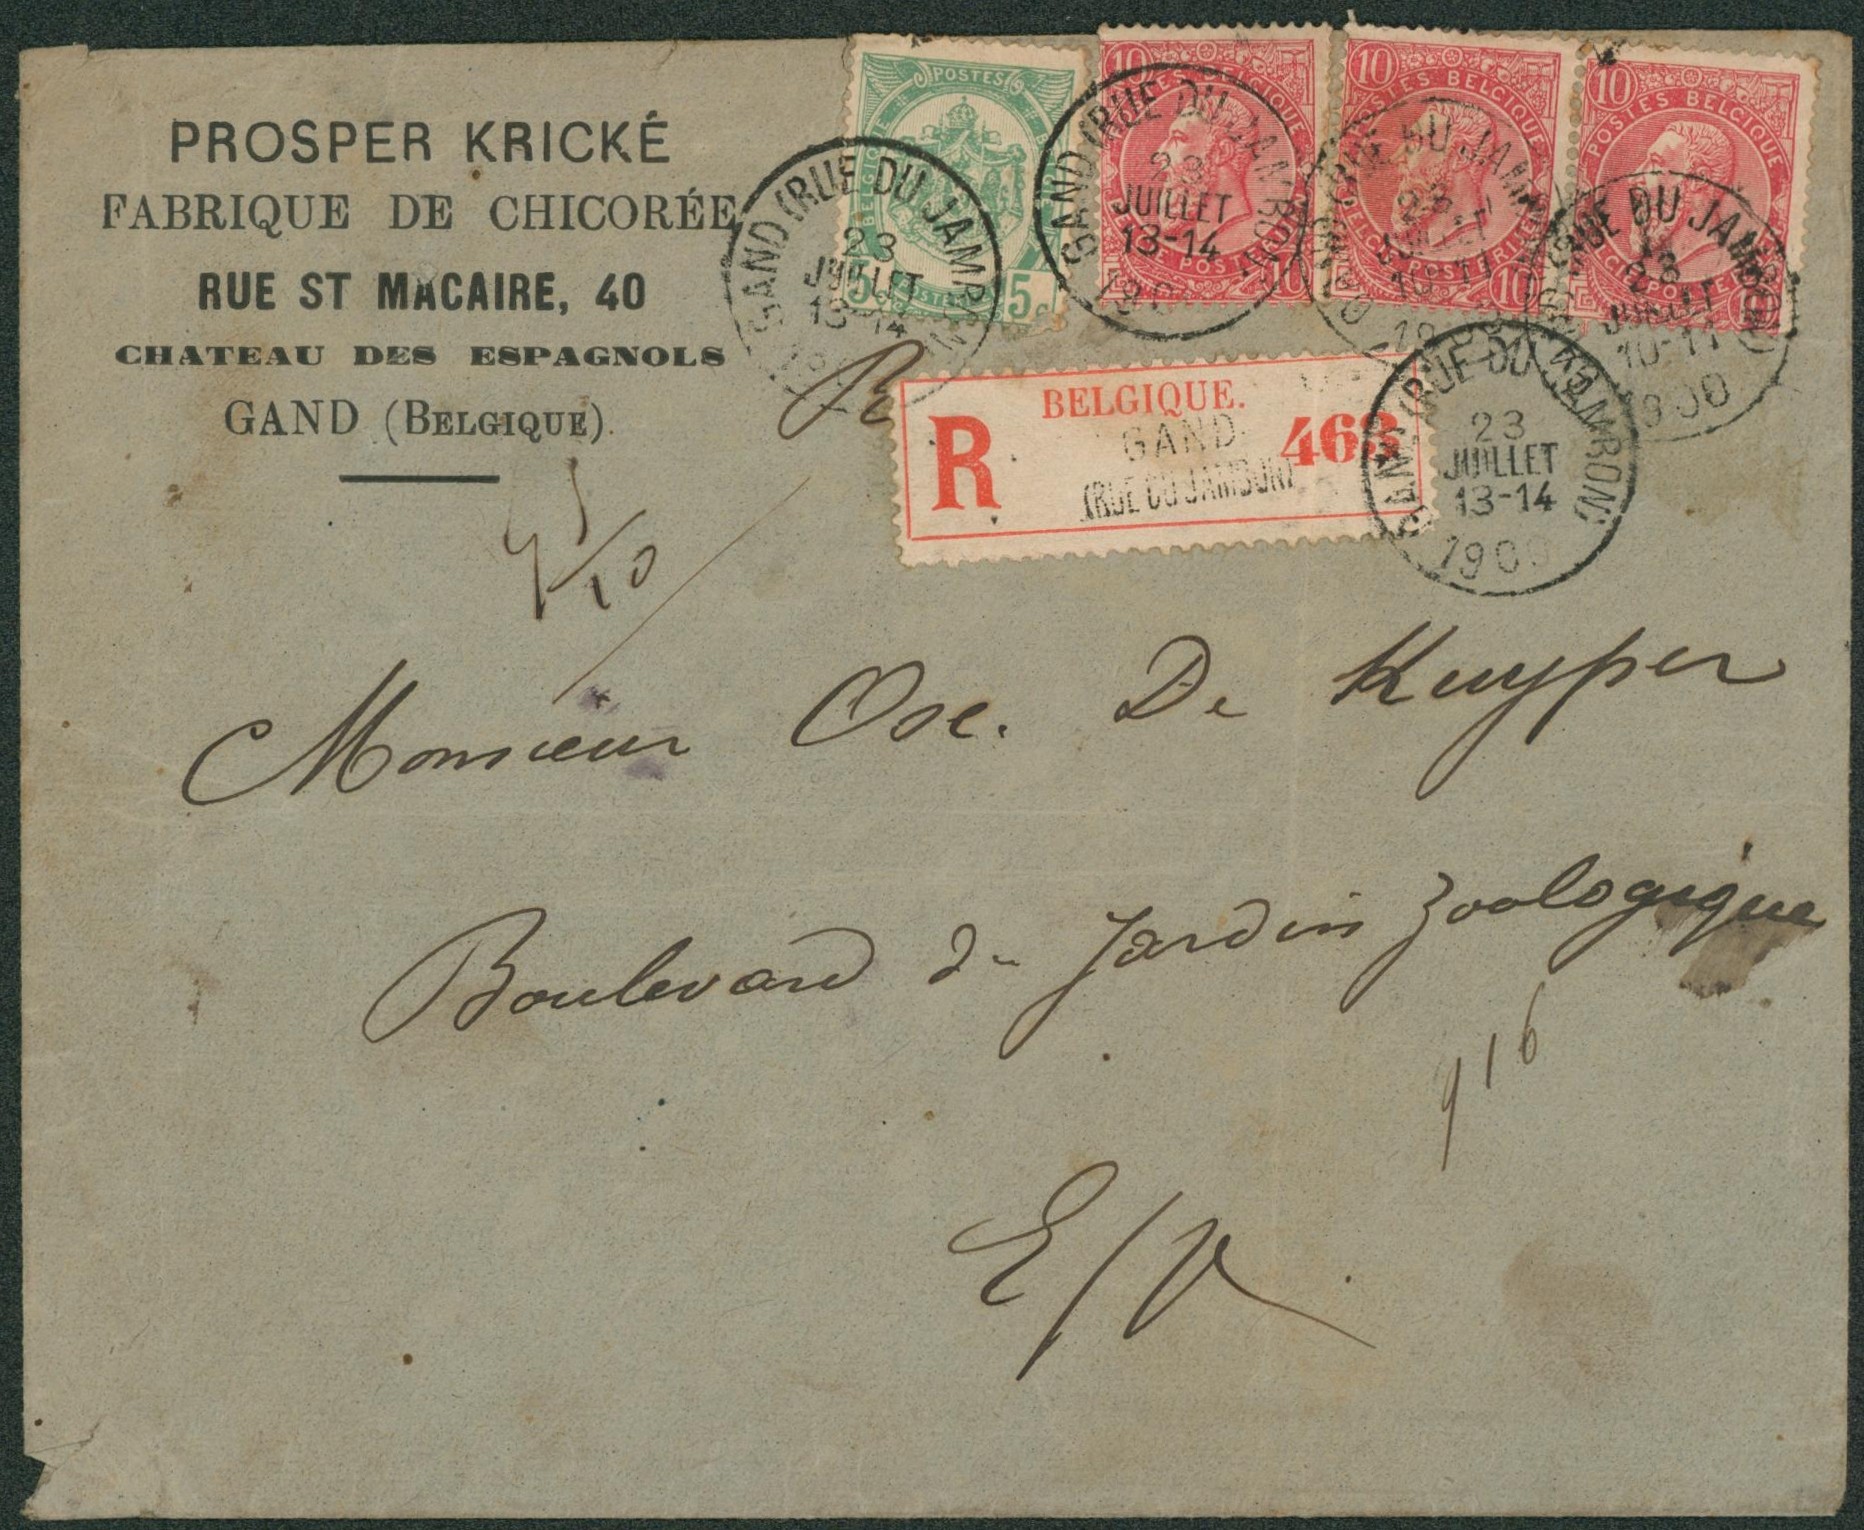 PROSPER KRICKÉ
FABRIQUE DE CHICORÉE
RUE ST MACAIRE, 40
CHATEAU DES ESPAGNOLS
GAND (BELGIQUE).
POSTES
BELGIQUE
5 5c
GAND (RUE DU JAMBON)
23
JUILLET
13-14
10 POSTES BELGIQUE
10
GAND (RUE DU JAMBON)
23
JUILLET
13-14
10 POSTES BELGIQUE
10
RUE DU JAMBON
JUILLET
10-11
10 POSTES BELGIQUE
RUE DU JAMBON
JUILLET
10-11
1900
R
BELGIQUE.
R GAND 463
(RUE DU JAMBON)
GAND (RUE DU JAMBON)
23
JUILLET
13-14
1900
Monsieur Osc. De Kuyper
Boulevard du Jardin Zoologique
916
E/V